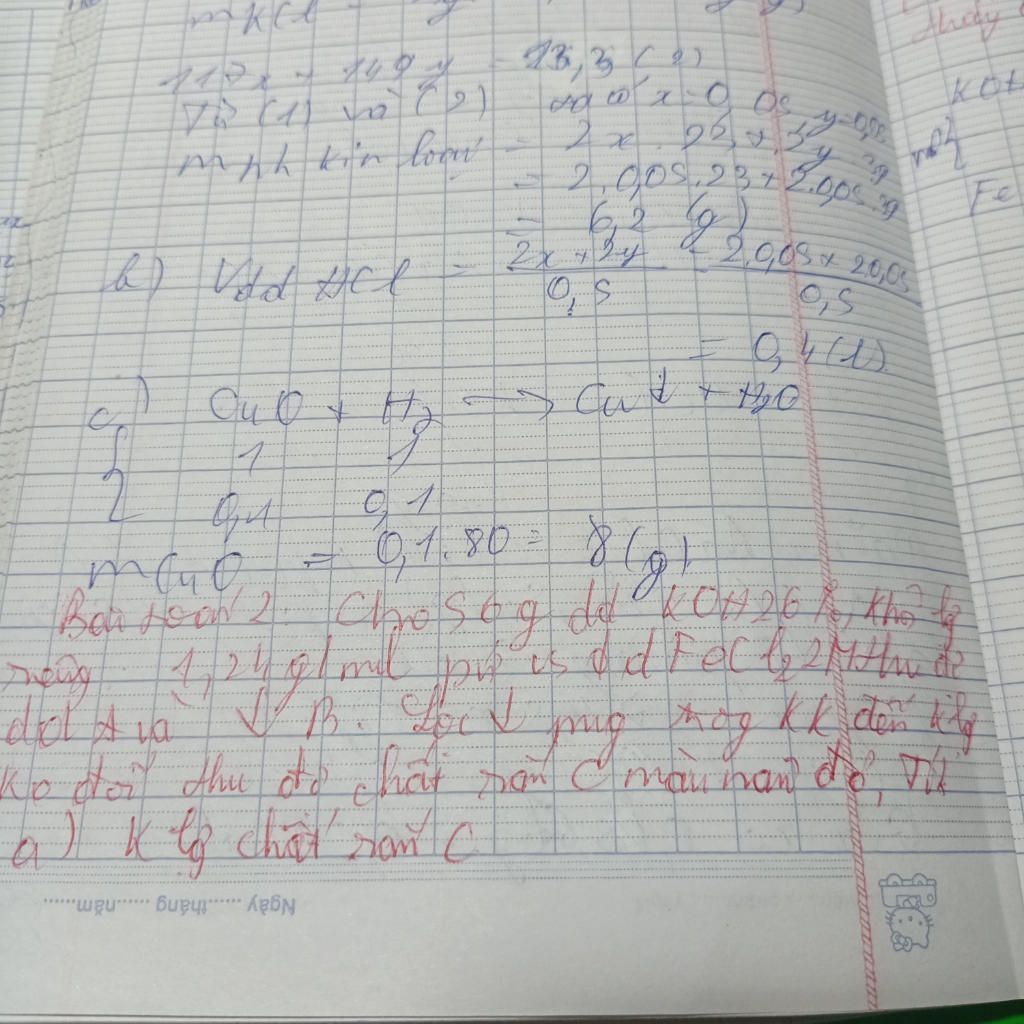 mKCl =
117x + 149y = 13,3 (2)
Từ (1) và (2) x = 0,05 y=0,05
mhh kim loại = 2x.23 + 2y.39
= 2.0,05.23 + 2.0,05.39
= 6,2 (g)
b) Vdd HCl = 2x + 2y / 0,5 = 2.0,05 + 2.0,05 / 0,5
= 0,4 (l)
c) CuO + H2 → Cu↓ + H2O
1 1
0,1 0,1
mCuO = 0,1.80 = 8 (g)
Bài toán 2: Cho 56g dd KOH 26%, khố lg
riêng 1,24g/ml pứ vs dd FeCl2 2M thu đc
dd A và ↓ B. Lọc ↓ nug trog kk đến klg
ko đổi thu đc chất rắn C màu nâu đỏ, Tí
a) K lg chất rắn C
Ngày ......tháng ......năm.......
KOH
Fe